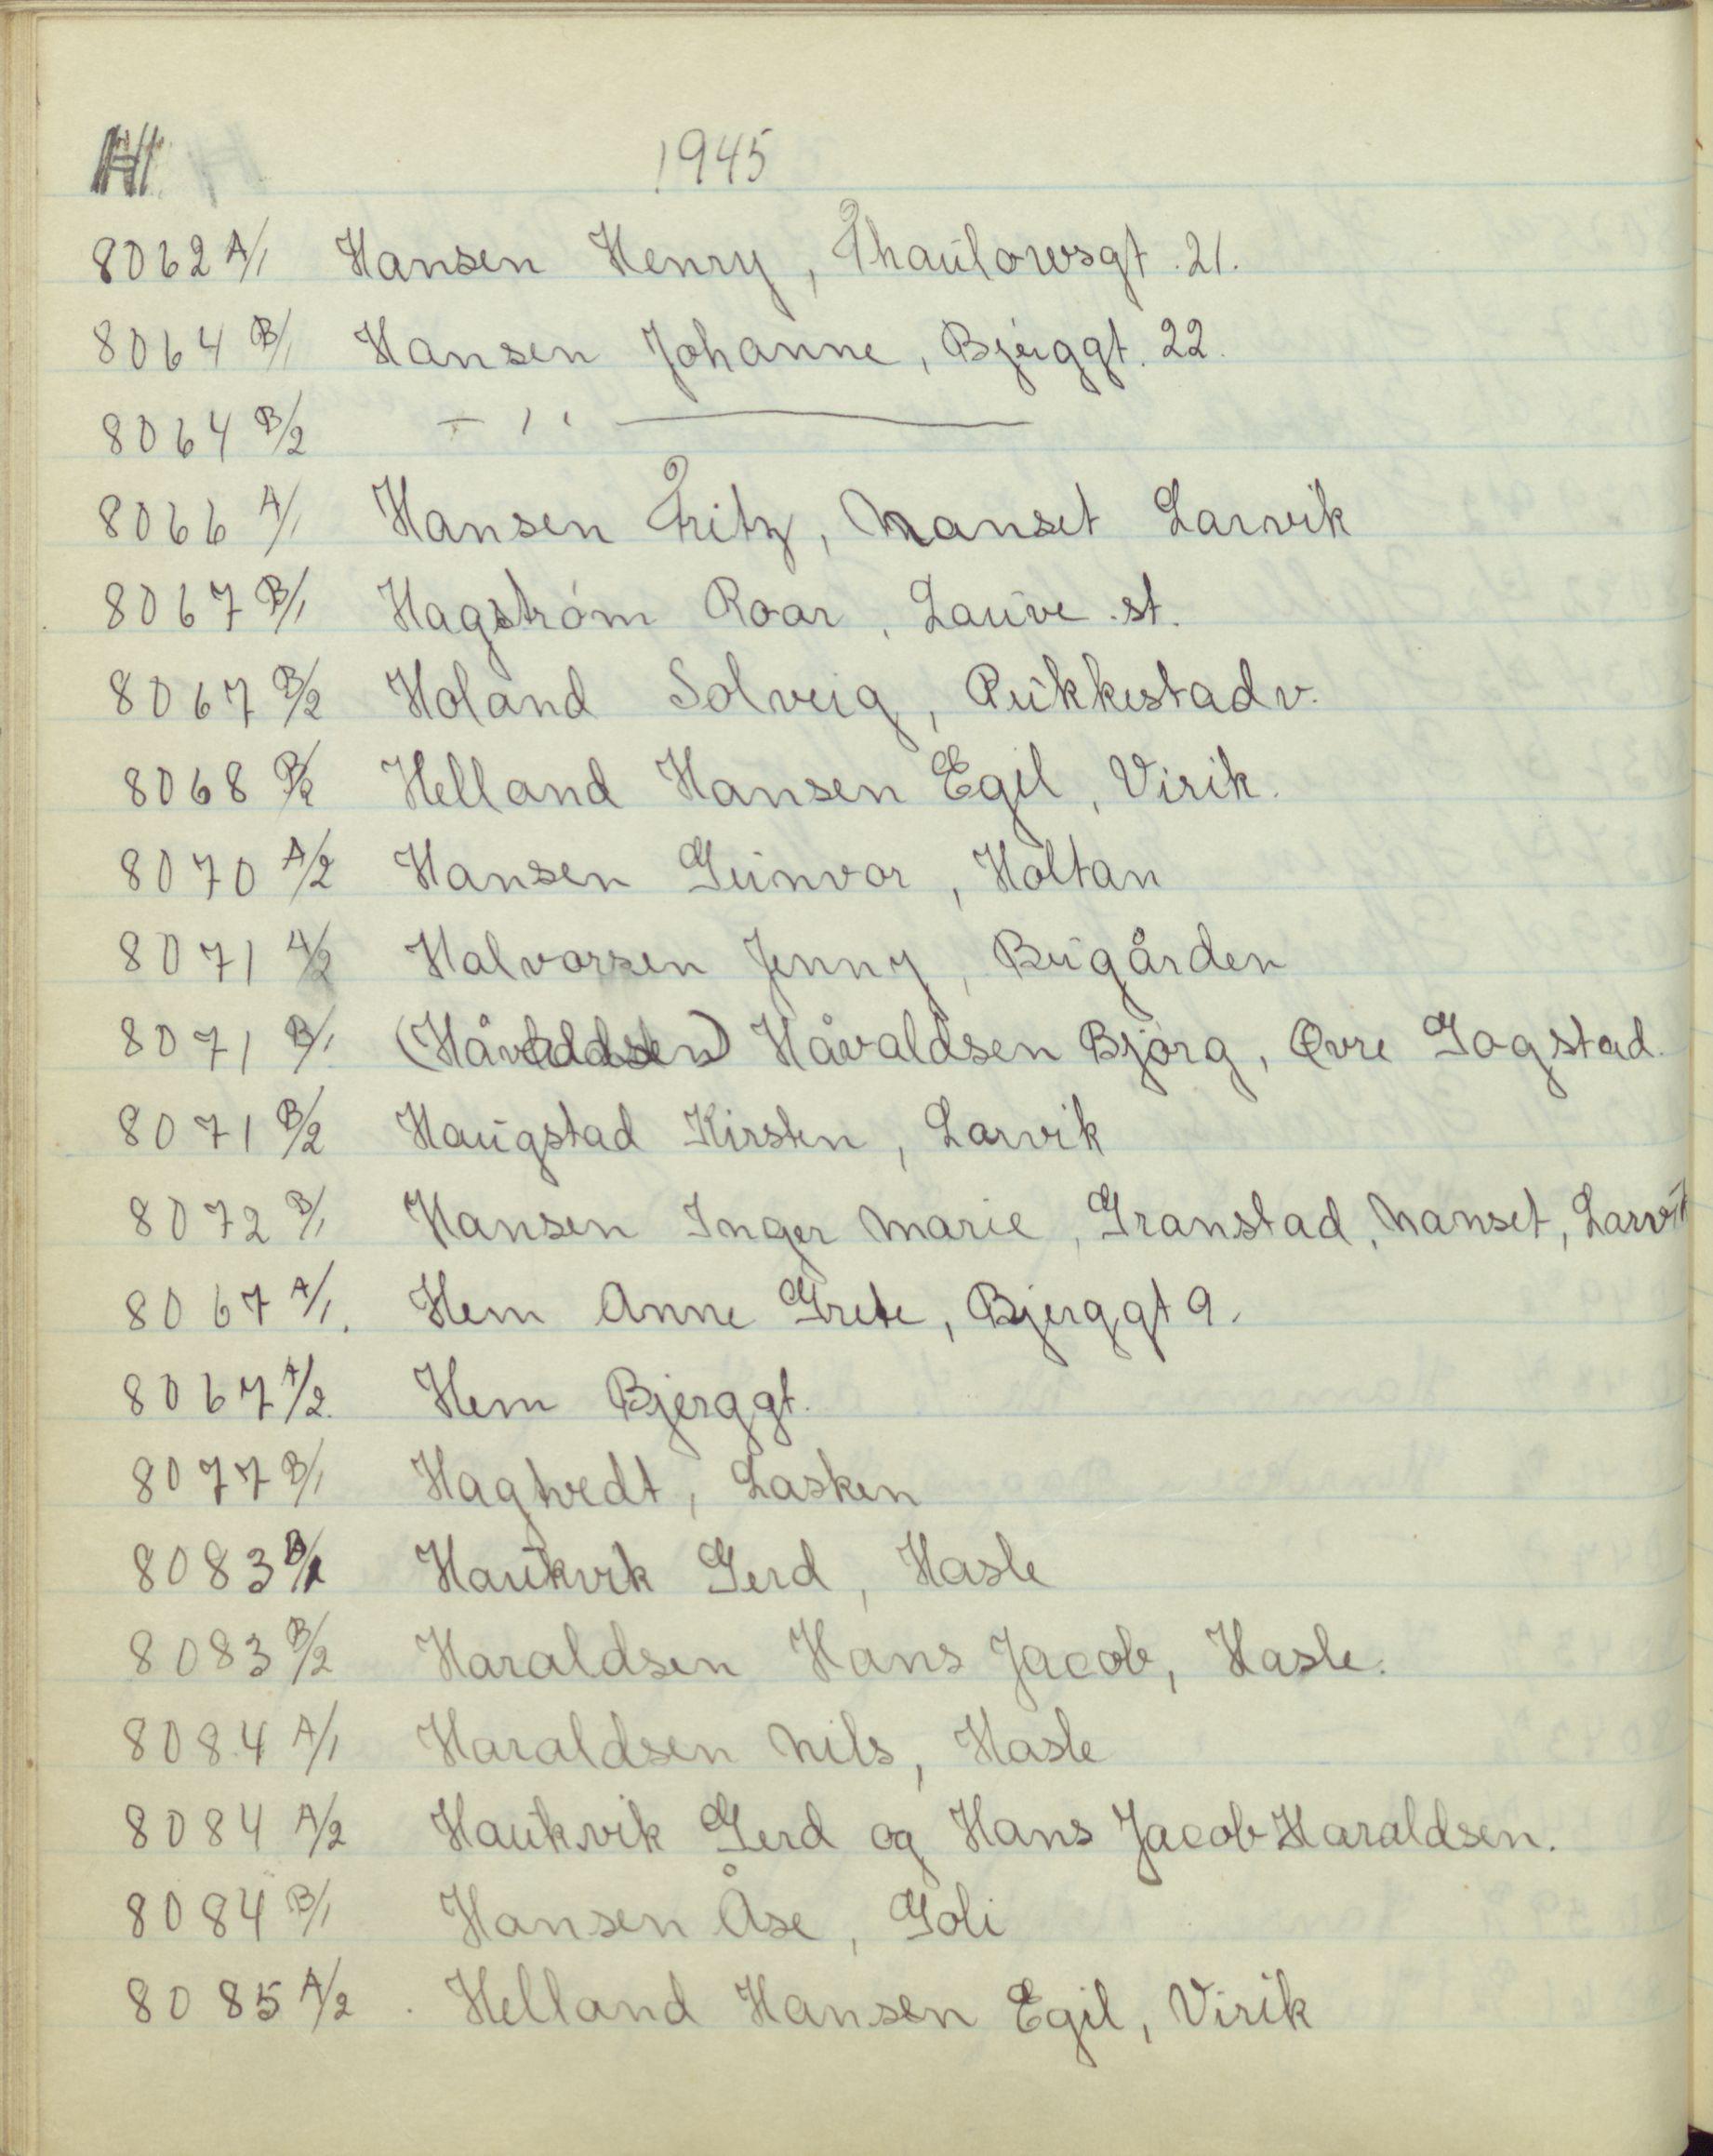 H 1945
8062 A/1 Hansen Henry, Thaulowsgt. 21.
8064 B/1 Hansen Johanne, Bjerggt. 22.
8064 B/2 — ,, ———
8066 A/1 Hansen Fritz, Nanset Larvik
8067 B/1 Hagström Roar, Lauve st.
8067 B/2 Holand Solveig, Pukkestadv.
8068 B/2 Helland Hansen Egil, Virik.
8070 A/2 Hansen Gunvor, Holtan
8071 A/2 Halvorsen Jenny, Bugården
8071 B/1 (Håvaldsen) Håvaldsen Bjørg, Øvre Gogstad.
8071 B/2 Haugstad Kirsten, Larvik
8072 B/1 Hansen Inger Marie, Granstad, Nanset, Larvik
8067 A/1. Hem Anne Grete, Bjerggt 9.
8067 A/2. Hem Bjerggt.
8077 B/1 Hagtvedt, Lasken
8083 B/1 Haukvik Gerd, Hasle
8083 B/2 Haraldsen Hans Jacob, Hasle.
8084 A/1 Haraldsen Nils, Hasle
8084 A/2 Haukvik Gerd og Hans Jacob Haraldsen.
8084 B/1 Hansen Åse, Goli
8085 A/2 Helland Hansen Egil, Virik